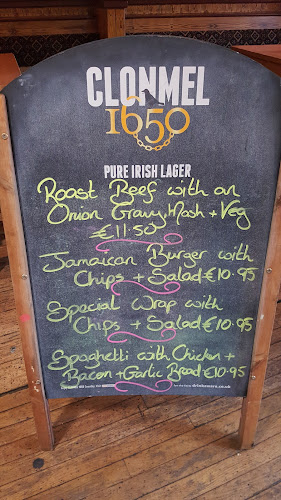 CLONMEL
1650
PURE IRISH LAGER
Roast Beef with an
Onion Gravy, Mash + Veg
€11.50
Jamaican Burger with
Chips + Salad €10.95
Special Wrap with
Chips + Salad €10.95
Spaghetti with Chicken +
Bacon + Garlic Bread €10.95
drinkaware.co.uk